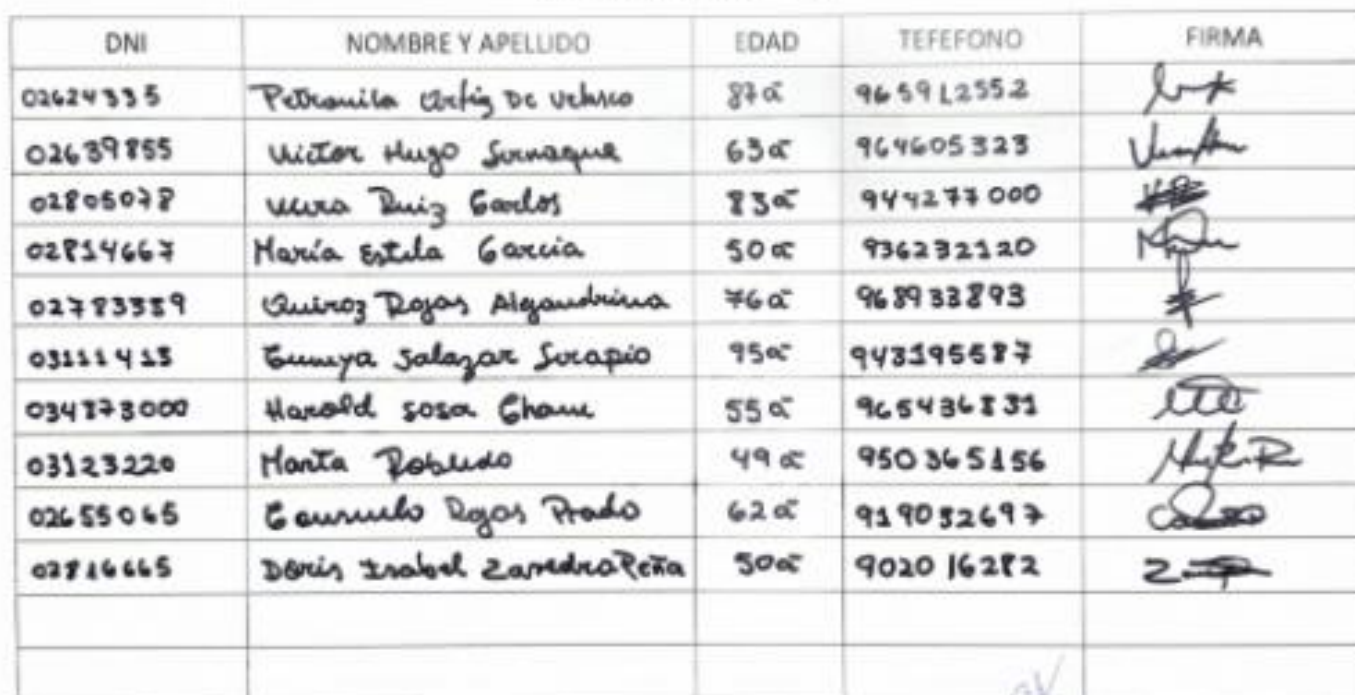 DNI NOMBRE Y APELLIDO EDAD TEFEFONO FIRMA
02624335 Petronila Ortiz De Velasco 87 a 965912552
02639855 Victor Hugo Sernaque 63 a 964605323
02805078 Vera Ruiz Carlos 83 a 944277000
02814667 María Estela Garcia 50 a 936232120
02783359 Quiroz Rojas Alejandrina 76 a 968933893
03111413 Salazar Serapio 95 a 943195587
034873000 Harold sosa 55 a 965436831
03123220 Marta Robledo 49 a 950365156
02655065 Consuelo Rojas Prado 62 a 919032697
02816665 Doris Isabel Peña 50 a 902016282